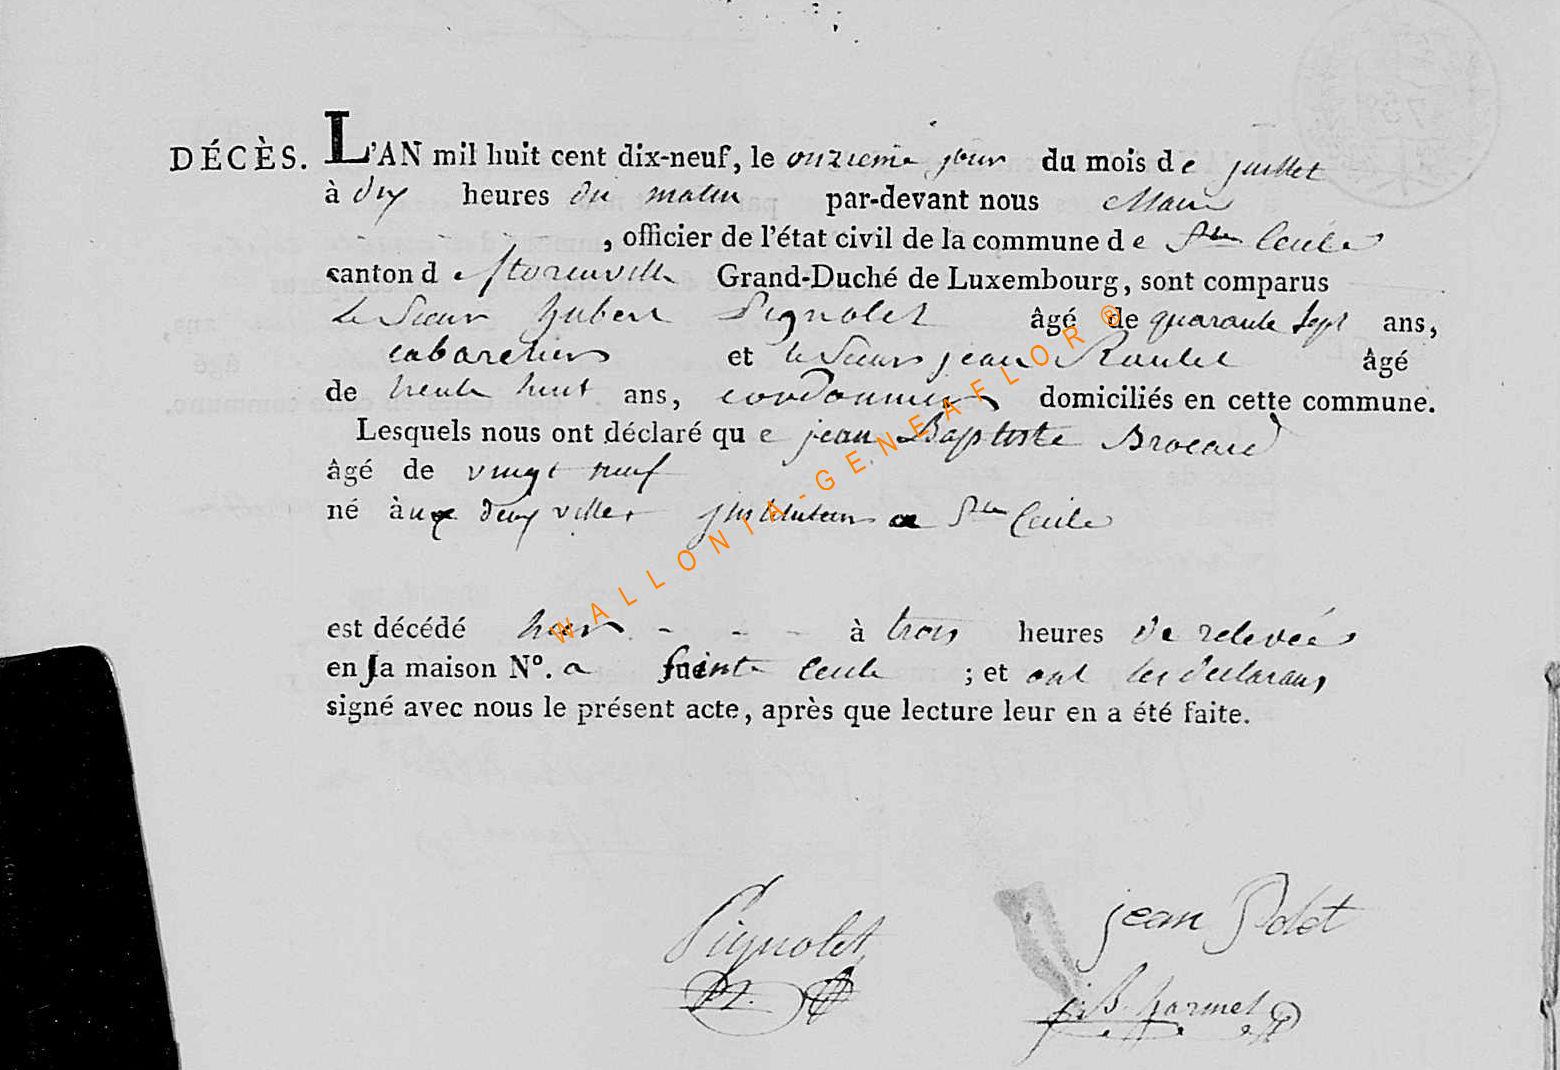 DÉCÈS. L'AN mil huit cent dix-neuf, le onzieme jour du mois de juillet
à dix heures du matin par-devant nous Maire
, officier de l'état civil de la commune de Ste Cecile
canton de florenville Grand-Duché de Luxembourg, sont comparus
Le Sieur hubert Pignolet âgé de quarante sept ans,
cabaretier et le Sieur jean âgé
de trente huit ans, cordonnier domiciliés en cette commune.
Lesquels nous ont déclaré que jean Baptiste Brocard
âgé de vingt neuf
né à aux deux villes instituteur a Ste Cecile
est décédé hier à trois heures de relevée
en la maison N°. a sainte Cecile ; et ont les declarans
signé avec nous le présent acte, après que lecture leur en a été faite.
Pignolet jean
J. B. harmel
WALLONIA-GENEAFLOR ®